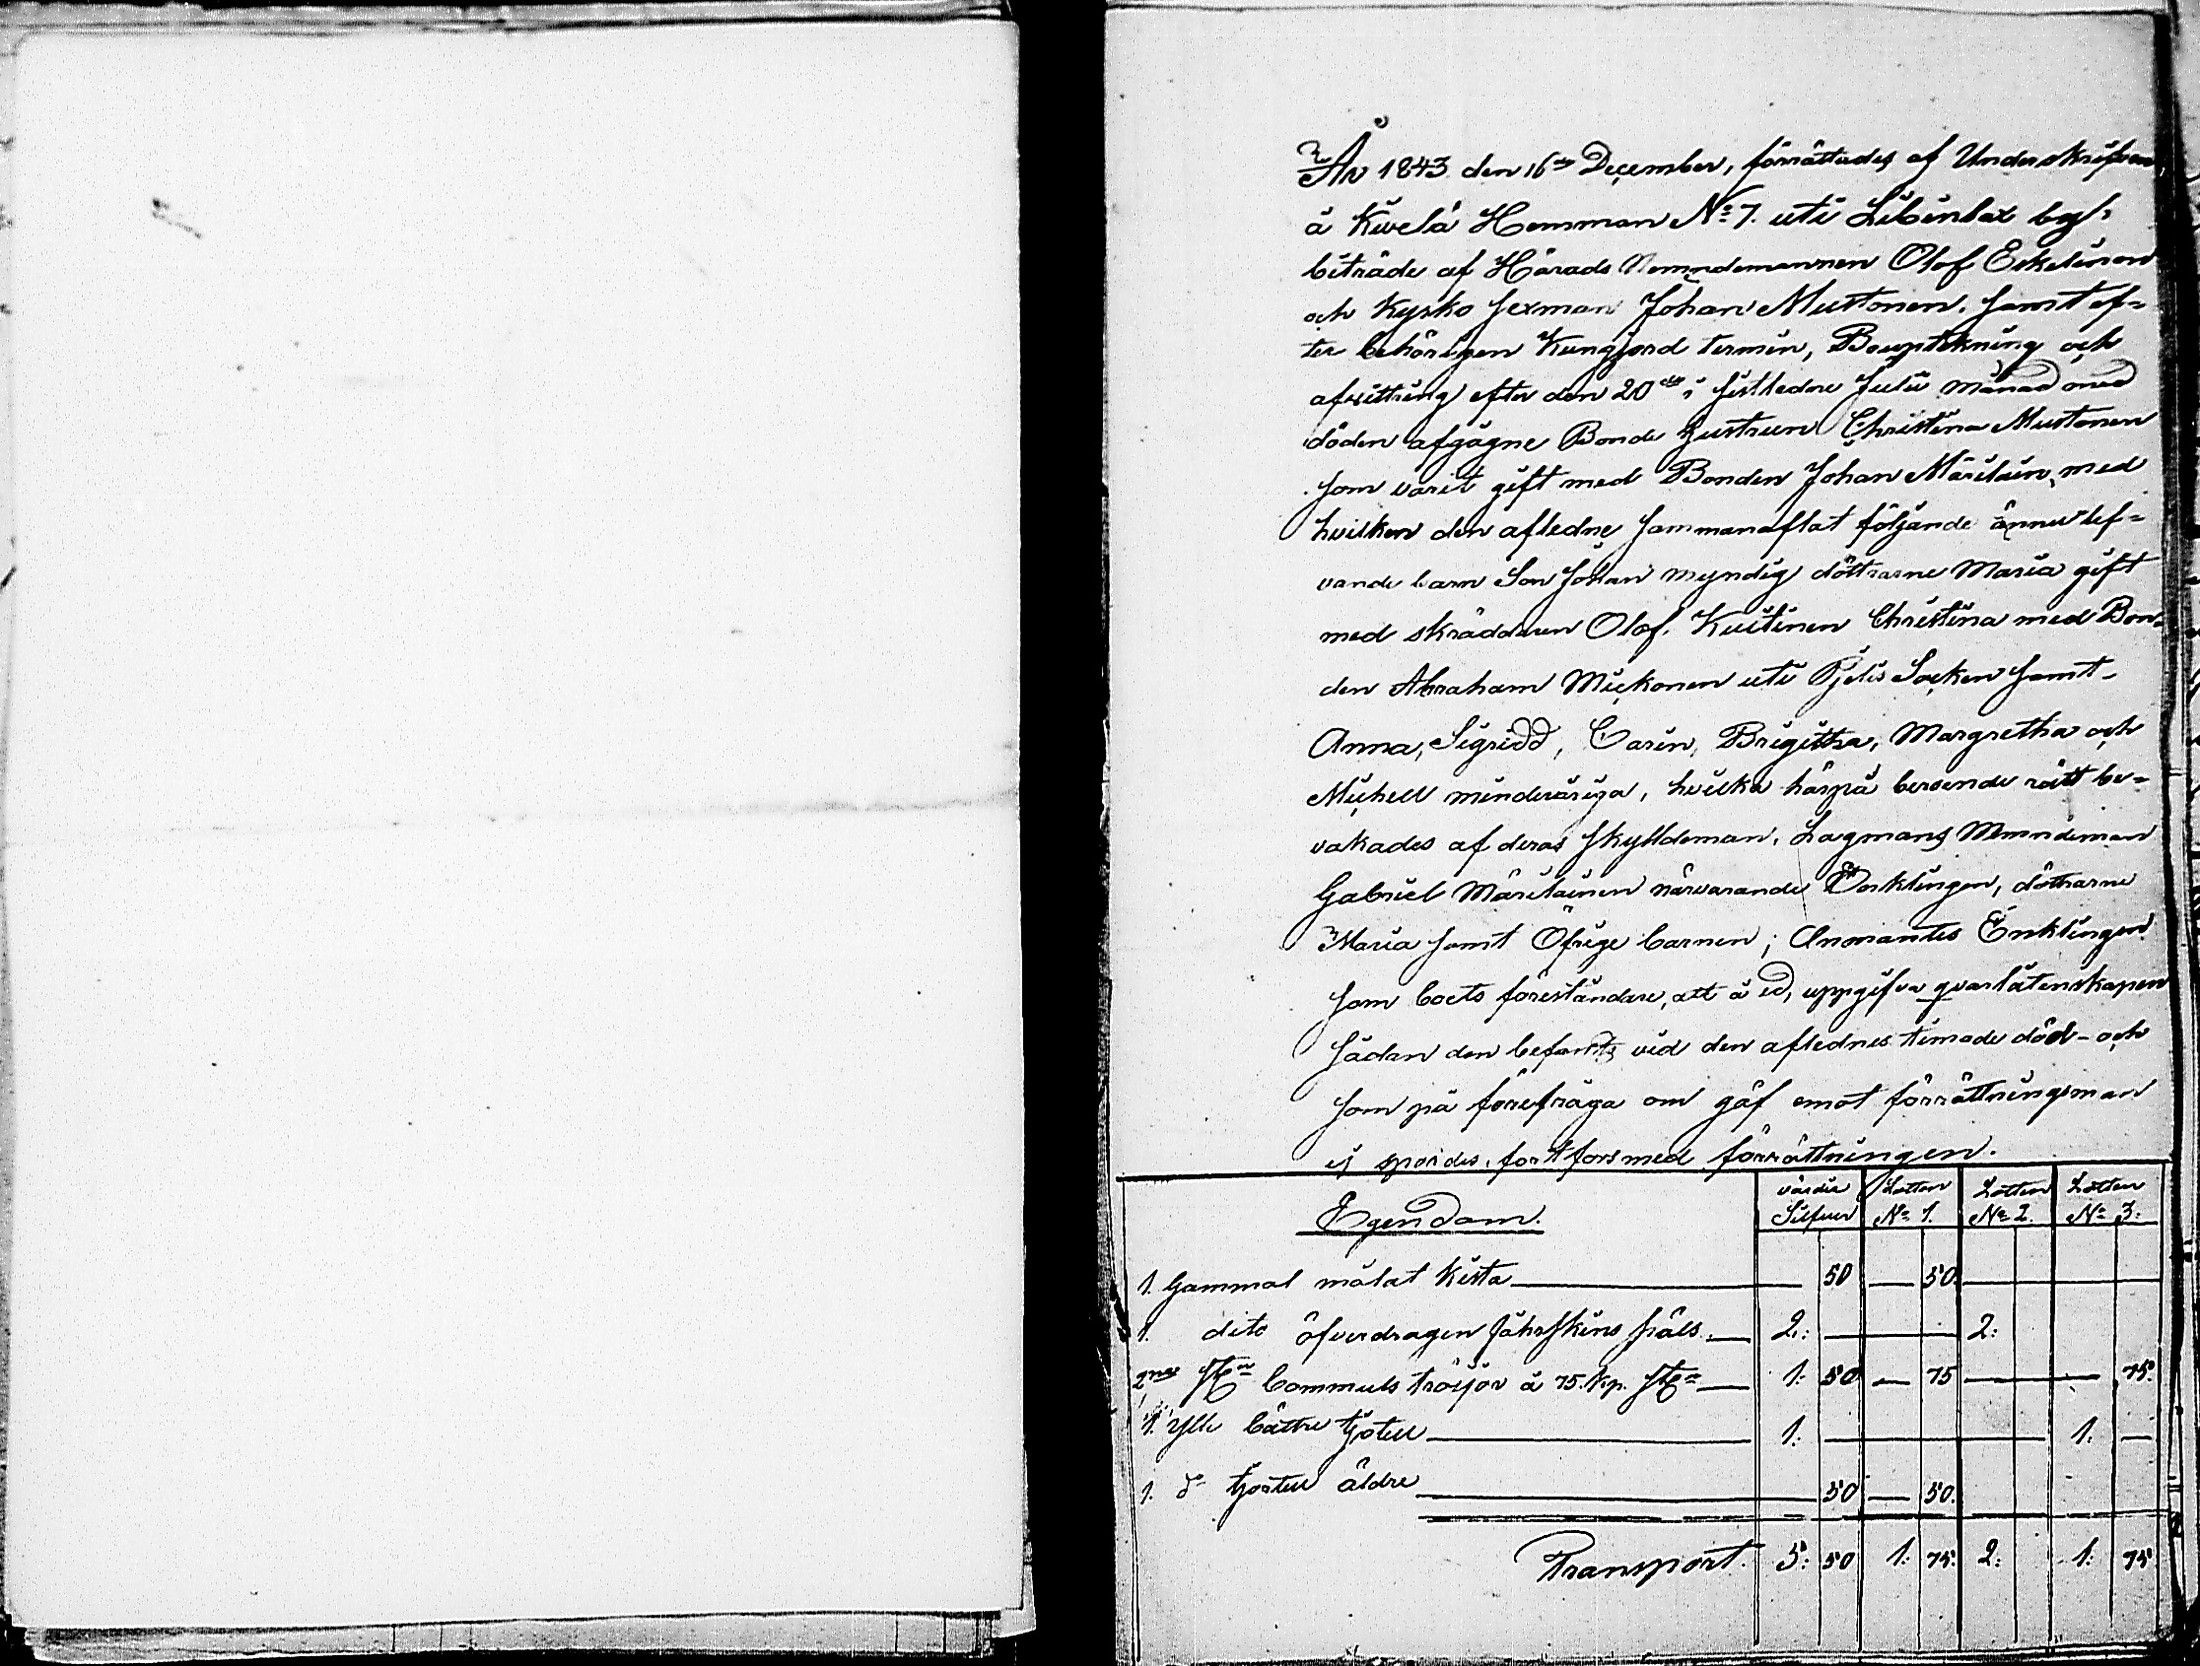 År 1843 den 16de December, förrättades af Underskrifven
å Kivelä Hemman N:o 7. uti Libinlax by,
biträde af Härads Nemndemannen Olof Eskelinen
och Kyrko sexman Johan Mustonen. samt ef=
ter behörigen Kungjord termin, Bouptekning och
afvittring efter den 20de i sistledne Julii månad med
döden afgågne Bonde hustrun Christina Mustonen
som varit gift med Bonden Johan Märiläin, med
hvilken den aflednе sammanaflat följande ännu lef=
vande barn Son Johan myndig döttrarne Maria gift
med skräddaren Olof. Kuitinen Christina med Bon=
den Abraham Mickonen uti Pjelis Socken samt
Anna, Sigridd, Carin, Brigitha, Margretha och
Michell minderåriga, hvilka härpå beroende rätt be=
vakades af deras skyldeman, Lagmans Nemndeman
Gabriel Märiläinen närvarande Enklingen, döttrarne
Maria samt Öfrige barnen; Anmantes Enklingen
som boets föreståndare, att å ed, uppgifva qvarlåtenskapen
sådan den befants vid den aflednes timade död - och
som på förefråga om gäf emot förrättningsman
ej spordes, fortfors med förrättningen.
Egendom. värdie Silfver Lotten No 1. Lotten No 2. Lotten No 3:
1. Gammal målat Kista 50 50.
1. dito öfverdragen fåhrskins päls. 2: 2:
2ne st Bommuls tröijor à 75. kp. st 1: 50 75 75.
1. Ylle bättre tjortell 1: 1:
1. do tjortell äldre 50 50.
Transport. 5: 50 1: 75: 2: 1: 75